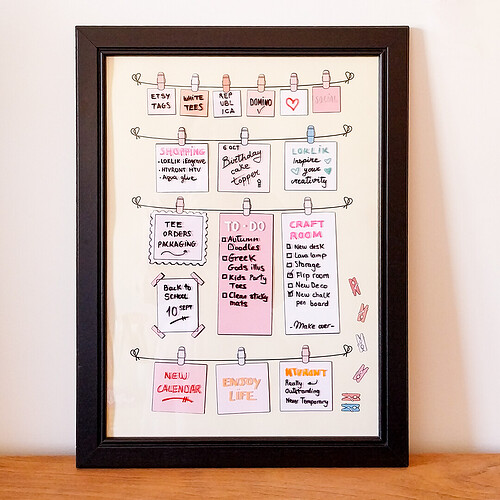 ETSY
TAGS
WHITE
TEES
REP
UBL
ICA
DOMINO
SOCIAL
SHOPPING
• LOKLIK iEngrave
• HTVRONT HTV
• Aqua glue
6 OCT
Birthday
cake
topper
LOKLiK
Inspire
your
creativity
TEE
ORDERS
PACKAGING
TO-DO
Autumn
Doodles
Greek
Gods illus
Kids Party
Tees
Clean sticky
mats
CRAFT
ROOM
New desk
Lava lamp
Storage
Flip room
New Deco
New chalk
pen board
- Make over -
BACK to
SCHOOL
10 SEPT
NEW
CALENDAR
ENJOY
LIFE
HTVRONT
Really
Outstanding
Never Temporary